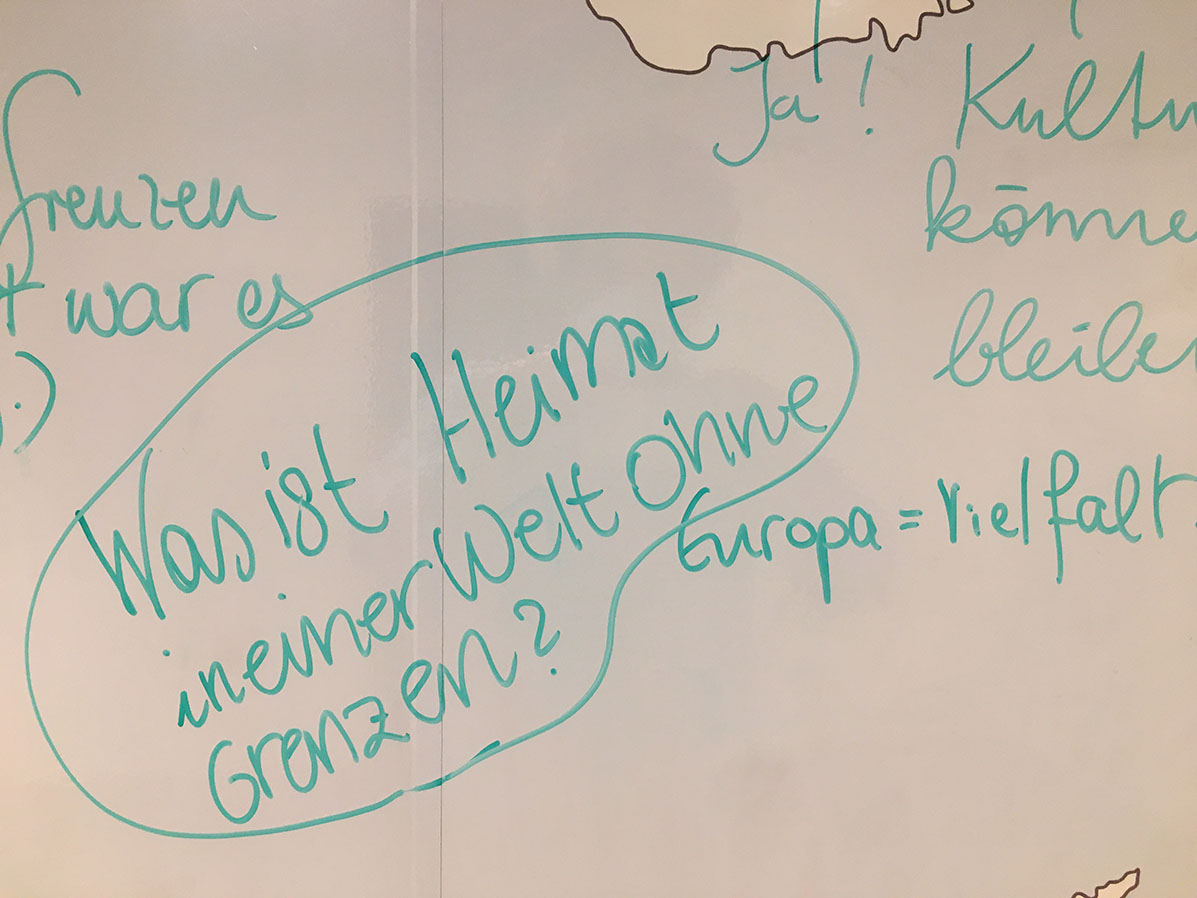 Grenzen
war es
Ja! Kultu
könne
bleibe
Was ist Heimat
in einer Welt ohne
Grenzen?
Europa = Vielfalt